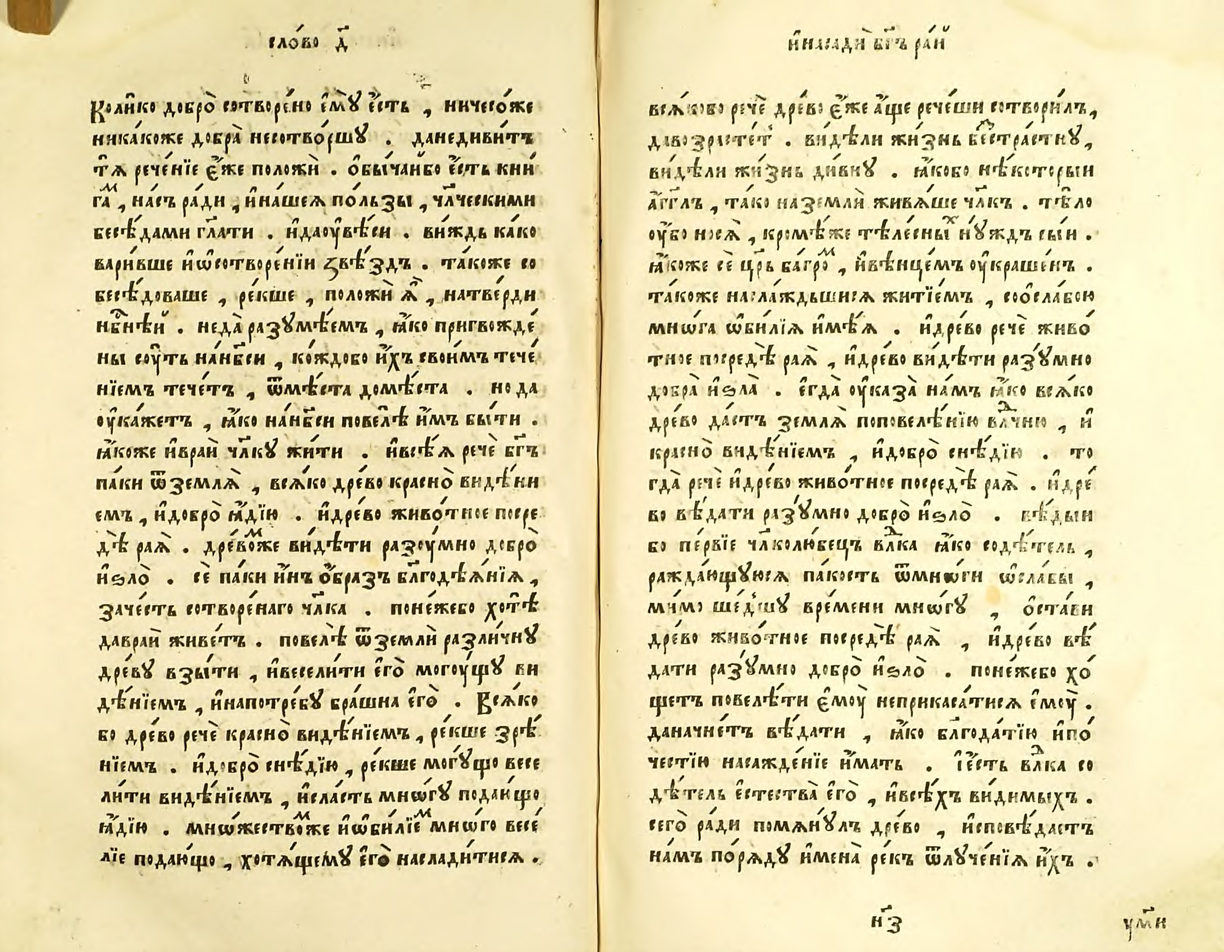 сло́во д҃
Коли́ко добро̀ сотворе́но є҆мꙋ̀ є҆́сть , ничесо́же
ника́коже добра̀ несотво́ршꙋ . данедиви́тъ
тѧ̀ рече́нїе є҆́же положѝ . ѻ҆бы́чаибо є҆́сть кни́
гамъ , на́съ ра́ди , и҆на́шеѧ по́льзы , чл҃ческими
бесѣ́дами гл҃ати . и҆даоу҆вѣ́си . ви́ждь ка́ко
вари́вше и҆ѡ҆сотворе́нїи ѕвѣ́здъ . та́коже со
бесѣ́доваше , ре́кше , положѝ ѧ҆̀ , натве́рди
нбⷭ҇нѣй . неда̀ разꙋмѣ́емъ , ꙗ҆́ко пригвожде́
ны соу́ть нанб҃си , ко́ждобо и҆́хъ свои́мъ тече́
нїемъ тече́тъ , ѿмѣ́ста домѣ́ста . но да
оу҆ка́жетъ , ꙗ҆́ко нанб҃си повелѣ̀ и҆̀мъ бы́ти .
ꙗ҆́коже и҆вра́й чл҃кꙋ жи́ти . и҆всѣ́ѧ речѐ бг҃ъ
па́ки ѿземлѧ̀ , всѧ́ко дре́во красно̀ видѣ́ни
емъ , и҆добро̀ ꙗ҆́дїю . и҆дре́во живо́тное посре
дѣ̀ раѧ̀ . дре́воⷨже ви́дѣти разоу́мно добро̀
и҆ѕло̀ . сѐ па́ки и҆́нъ ѻ҆́бразъ бл҃годѣѧ́нїѧ ,
за́честь сотворе́наго чл҃ка . поне́жебо хотѣ̀
давра́й живе́тъ . повелѣ̀ ѿземлѝ разли́чнꙋ
дре́вꙋ взы́ти , и҆весели́ти є҆го̀ могоу́щꙋ ви
дѣ́нїемъ , и҆напотре́бꙋ бра́шна є҆го̀ . Всѧ́ко
бо дре́во речѐ красно̀ видѣ́нїемъ , ре́кше зрѣ́
нїемъ . и҆добро̀ снѣ́дїю , ре́кше могꙋ́що весе
ли́ти видѣ́нїемъ , и҆сла́сть мнѡ́гꙋ подаю́що
ꙗ҆́дїю . мнѡ́жествоⷨже и҆ѡ҆би́лїеⷨ мно́го весе́
лїе подаю́що , хотѧ́щемꙋ є҆го̀ наслади́тисѧ .
и҆насадѝ бг҃ъ ра́й
всѧ́кобо речѐ дре́во є҆́же а҆́ще рече́ши сотвори́лъ ,
давозрасте́т . ви́дѣли жи́знь беⷥстра́стнꙋ ,
ви́дѣли жи́знь ди́внꙋ . ꙗ҆́кобо нѣ́которыи
а҆́гг҃лъ , та́ко наземлѝ живѧ́ше чл҃къ . тѣ́ло
оу҆́бо носѧ̀ , кромѣ́же тѣле́сныⷯ нꙋ́ждъ сы́и .
ꙗ҆́коже сѐ цр҃ь багроⷨ , и҆вѣнце́мъ оу҆кра́шенъ .
та́коже наслажь́дшисѧ житїе́мъ , сосла́бою
мнѡ́га ѡ҆би́лїѧ и҆мѣ́ѧ . и҆дре́во речѐ живо́
тное посредѣ̀ раѧ̀ , и҆дре́во ви́дѣти разꙋ́мно
добра̀ и҆ѕла̀ . є҆гда̀ оу҆каза̀ на́мъ ꙗ҆́ко всѧ́ко
дре́во да́стъ землѧ̀ поповелѣ́нїю влⷣчню , и҆
красно̀ видѣ́нїемъ , и҆добро̀ снѣ́дїю . то
гда̀ речѐ и҆дре́во живо́тное посредѣ̀ раѧ̀ . и҆дре́
во вѣ́дати разꙋ́мно добро̀ и҆ѕло̀ . вѣ́дыи
бо пе́рвїе чл҃колю́бецъ влⷣка ꙗ҆́ко содѣ́тель ,
ражда́ющꙋюсѧ па́кость ѿмнѡ́ги ѡ҆сла́бы ,
ми́мо ше́дшꙋ вре́мени мнѡ́гꙋ , ѻ҆ста́ви
дре́во живо́тное посредѣ̀ раѧ̀ , и҆дре́во вѣ́
дати разꙋ́мно добро̀ и҆ѕло̀ . поне́жебо хо́
щетъ повелѣ́ти є҆моу̀ неприкаса́тисѧ є҆моу̀ .
дана́чнетъ вѣ́дати , ꙗ҆́ко бл҃года́тїю и҆по
че́стїю насажде́нїе и҆́мать . І҆е́сть влⷣка со
дѣ́тель є҆стества̀ є҆го̀ , и҆всѣ́хъ ви́димыхъ .
сего̀ ра́ди помѧнꙋ́лъ дре́во , и҆сповѣ́дастъ
на́мъ по́рѧдꙋ и҆мена̀ ре́къ ѿлꙋче́нїѧ и҆́хъ .
н҃з